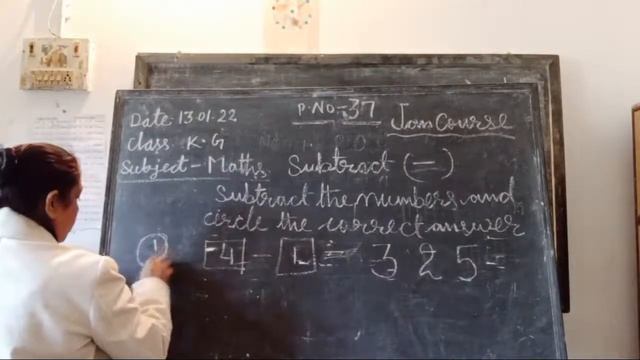 P.No-:37
Date 13.01.22
Jan Course
Class K.G
Subject - Maths Subtract (-)
Subtract the numbers and
circle the correct answer
① 4 - 1 = 3 2 5